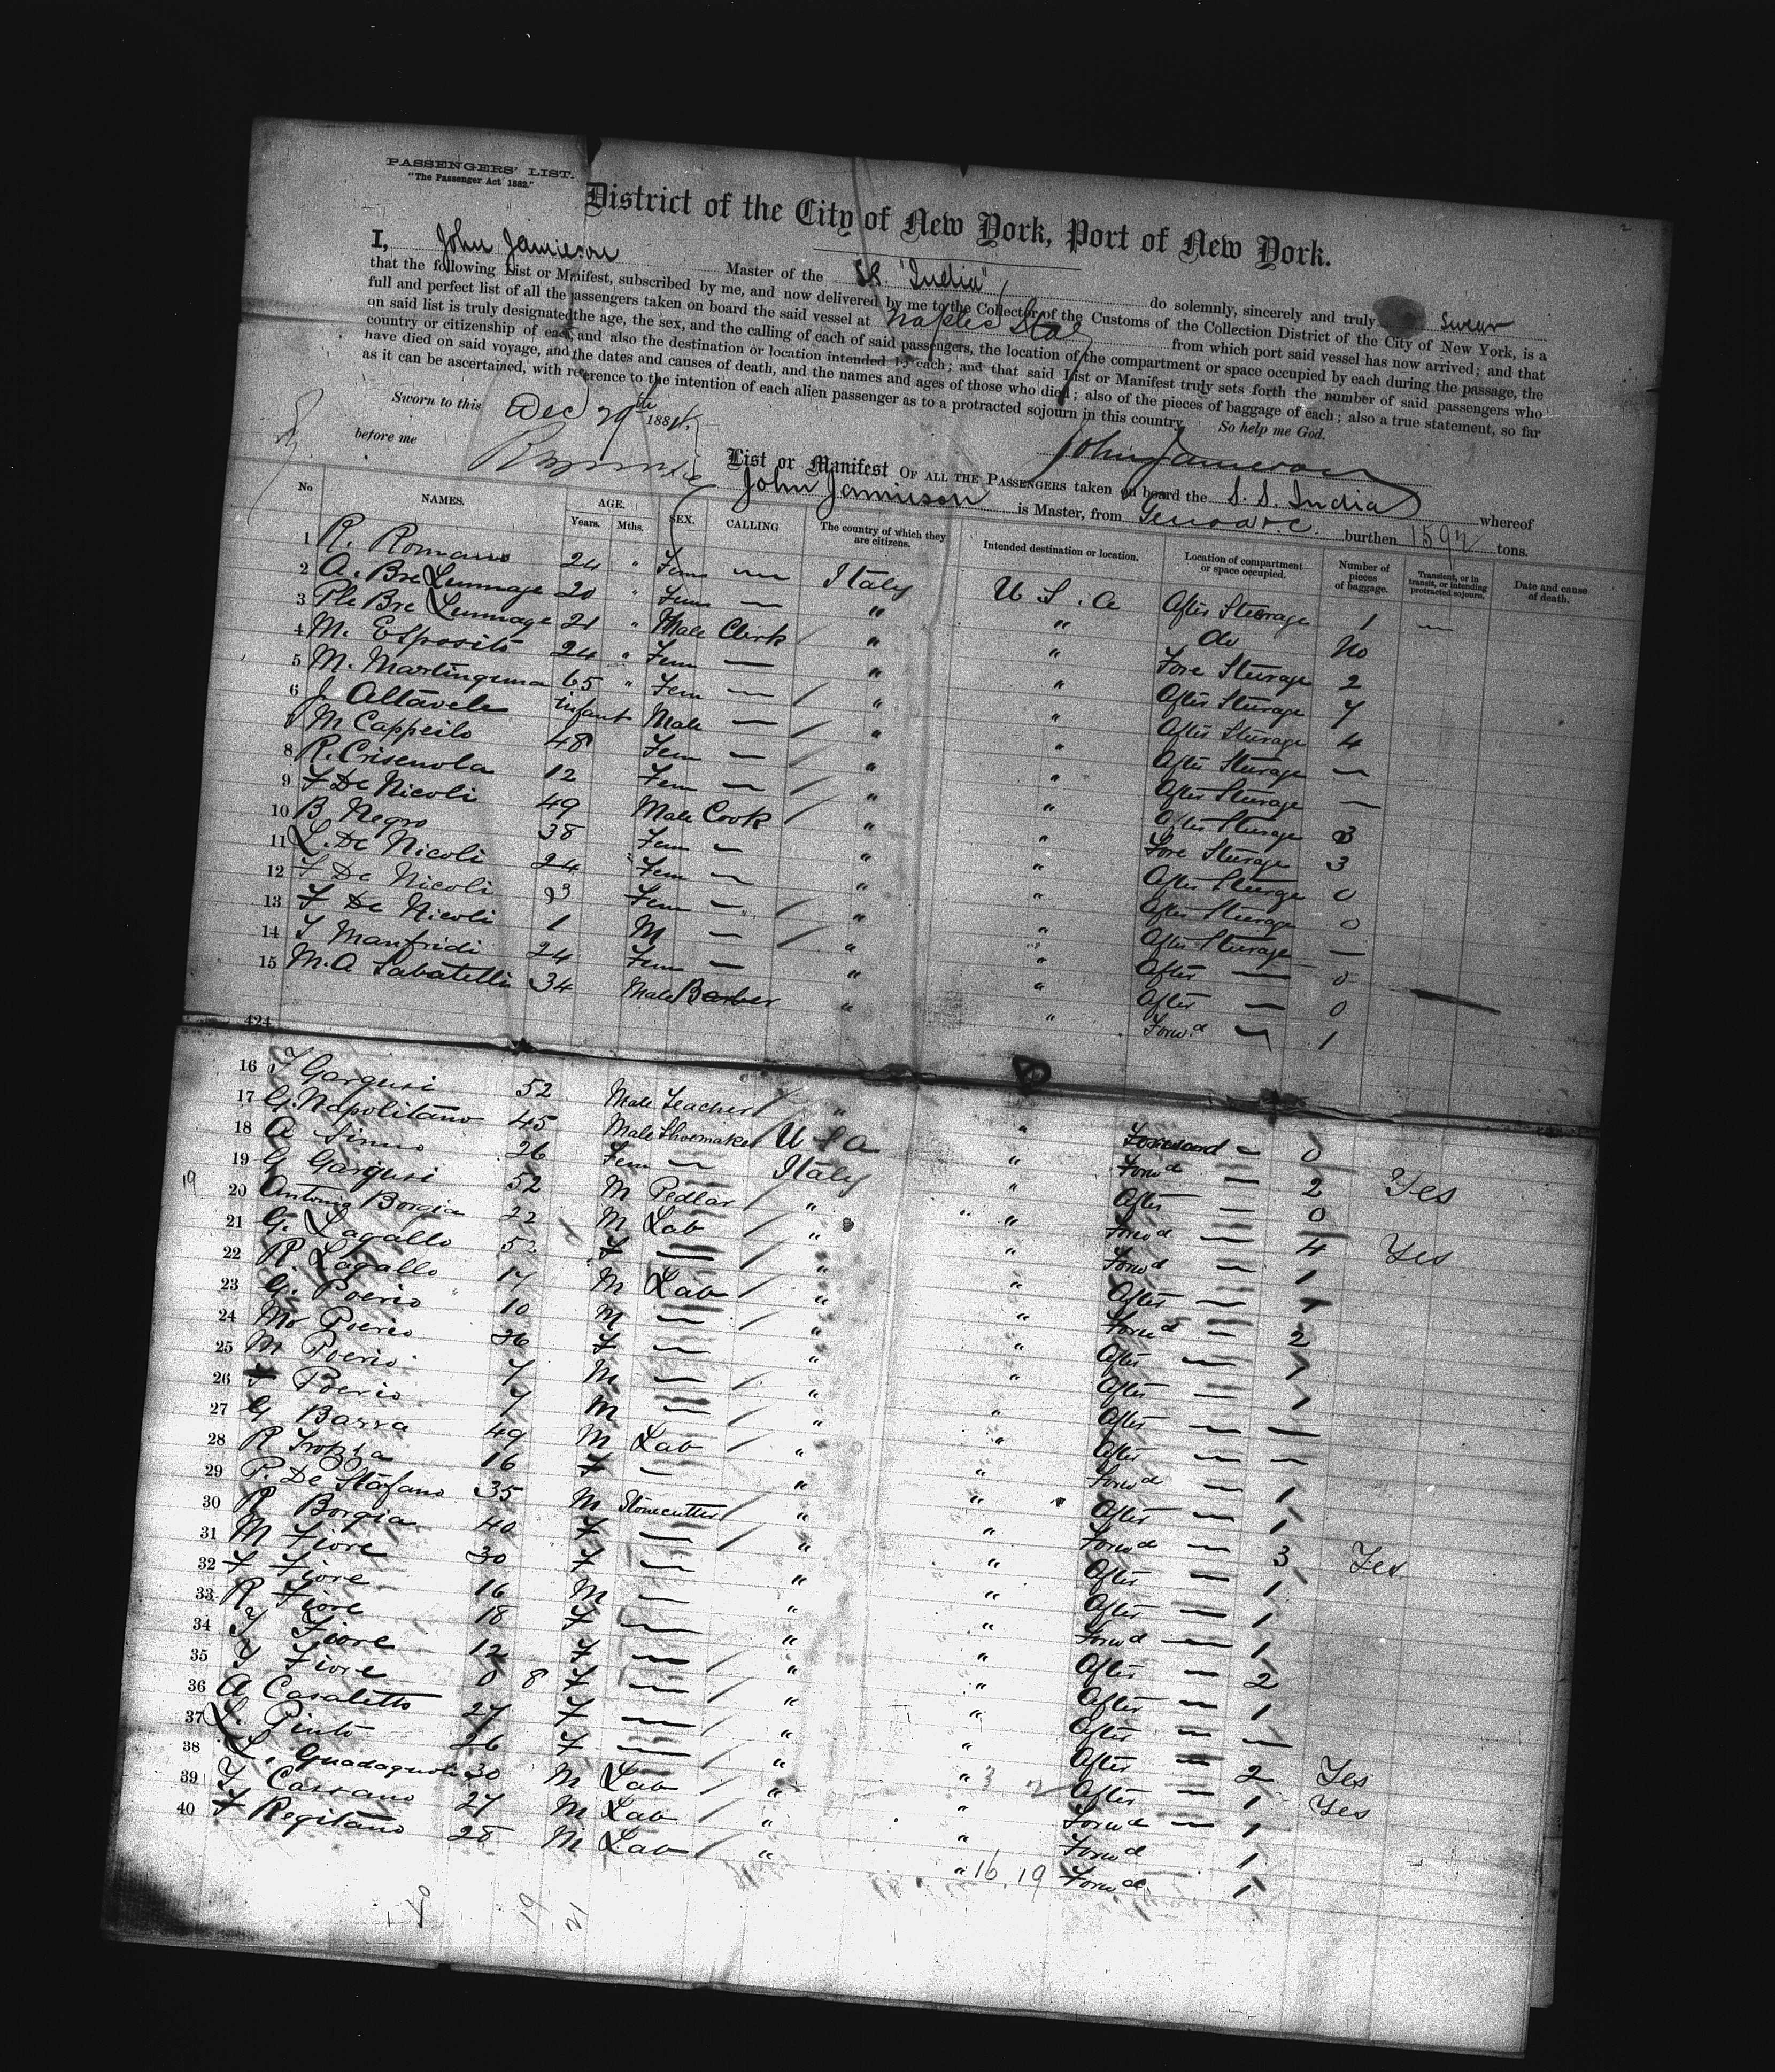 PASSENGERS' LIST.
"The Passenger Act 1882."
District of the City of New York, Port of New York.
I, John Jamieson Master of the SS. "India", do solemnly, sincerely and truly Swear
that the following List or Manifest, subscribed by me, and now delivered by me to the Collector of the Customs of the Collection District of the City of New York, is a
full and perfect list of all the passengers taken on board the said vessel at Naples from which port said vessel has now arrived; and that
on said list is truly designated the age, the sex, and the calling of each of said passengers, the location of the compartment or space occupied by each during the passage, the
country or citizenship of each and also the destination or location intended by each; and that said List or Manifest truly sets forth the number of said passengers who
have died on said voyage, and the dates and causes of death, and the names and ages of those who died; also of the pieces of baggage of each; also a true statement, so far
as it can be ascertained, with reference to the intention of each alien passenger as to a protracted sojourn in this country. So help me God.
Sworn to this Dec 188
before me
John Jamieson
List or Manifest OF ALL THE PASSENGERS taken on board the S. S. India whereof
John Jamieson is Master, from Genoa &c. burthen 1592 tons.
No NAMES. AGE. Years. Mths. SEX. CALLING The country of which they are citizens. Intended destination or location. Location of compartment or space occupied. Number of pieces of baggage. Transient, or in transit, or intending protracted sojourn. Date and cause of death.
1 R. Romano 24 " Fem — Italy U S. A After Steerage 1 —
2 A. Bre 20 " Fem — " " do No
3 Ple Bre 21 " Male Clerk " " Fore Steerage 2
4 M. Esposito 24 " Fem — " " After Steerage 7
5 M. Martinguna 65 " Fem — " " After Steerage 4
6 J. Altavele infant Male — " " After Steerage —
M Cappeilo 48 Fem — " " After Steerage —
8 R. Crisenola 12 Fem — " " After Steerage 3
9 F De Nicoli 49 Male Cook " " Fore Steerage 3
10 B Negro 38 Fem — " " After Steerage 0
11 L. De Nicoli 24 Fem — " " After Steerage 0
12 F De Nicoli 3 Fem — " " After Steerage —
13 F De Nicoli 1 M — " " After — 0
14 T Manfridi 24 Fem — " " After — 0
15 M. A Sabatelli 34 Male Barber " " Forwd — 1
424
16 Gargusi 52 Male Teacher " " Forward — 0
17 G. Napolitano 45 Male Shoemaker U S A " Forwd — 2 Yes
18 A Sinno 26 Fem — Italy " After — 0
19 G Gargusi 52 M Pedlar " " Forwd — 4 Yes
20 Antonio Borgia 22 M Lab " " Forwd — 1
21 G. Lagallo 52 F — " " After — 1
22 R. Lagallo 17 M Lab " " Forwd — 2
23 G. Poerio 10 M — " " After — 1
24 Ma Poerio 36 F — " " After — 1
25 M Poerio 7 M — " " After — —
26 F Poerio 7 M — " " After — —
27 G Barra 49 M Lab " " Forwd — 1
28 R Trozza 16 F — " " After — 1
29 P. De Stafano 35 M Stonecutter " " Forwd — 3 Yes
30 R Borgia 40 F — " " After — 1
31 M Fiore 30 F — " " After — 1
32 F Fiore 16 M — " " Forwd — 1
33 R Fiore 18 F — " " After — 2
34 T Fiore 12 F — " " After — 1
35 T Fiore 0 8 F — " " After — —
36 A Casaletto 27 F — " " After — 2 Yes
37 L. Pinto 26 F — " " After — 1 Yes
38 L. Guadagnoli 30 M Lab " " Forwd — 1
39 T. Cassano 27 M Lab " " Forwd 1
40 F Regitano 28 M Lab " " 16 19 Forwd 1